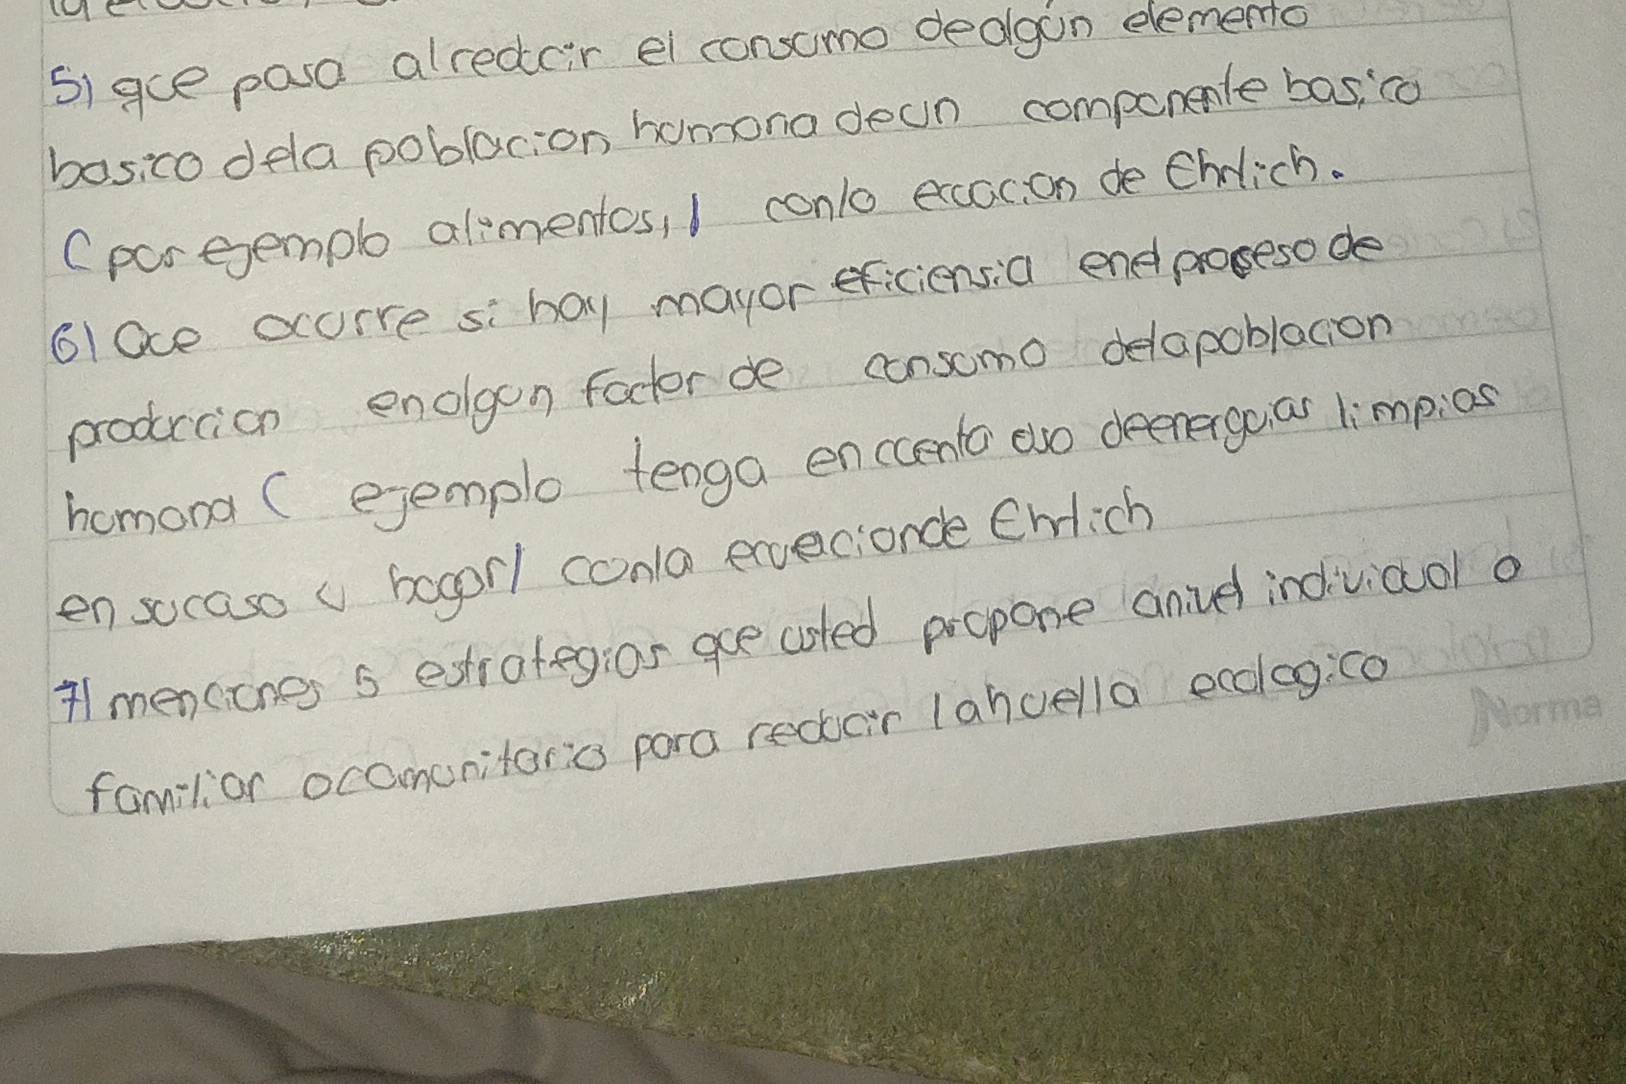 5) que pasa al reducir el consumo de algún elemento
basico de la poblacion humana de un componente basico
( por ejemplo alimentos, ) con lo ecuacion de Ehrlich.
6) Que ocurre si hay mayor eficiensia en el proceso de
produccion en algun factor de consumo de la poblacion
humana ( ejemplo tenga en cuenta uso de energuias limpias
en su caso u hogar) con la ecuecion de Ehrlich
7) menciones 5 estrategias que usted propone a nivel individual o
familiar o comunitario para reducir la huella ecologico
Norma